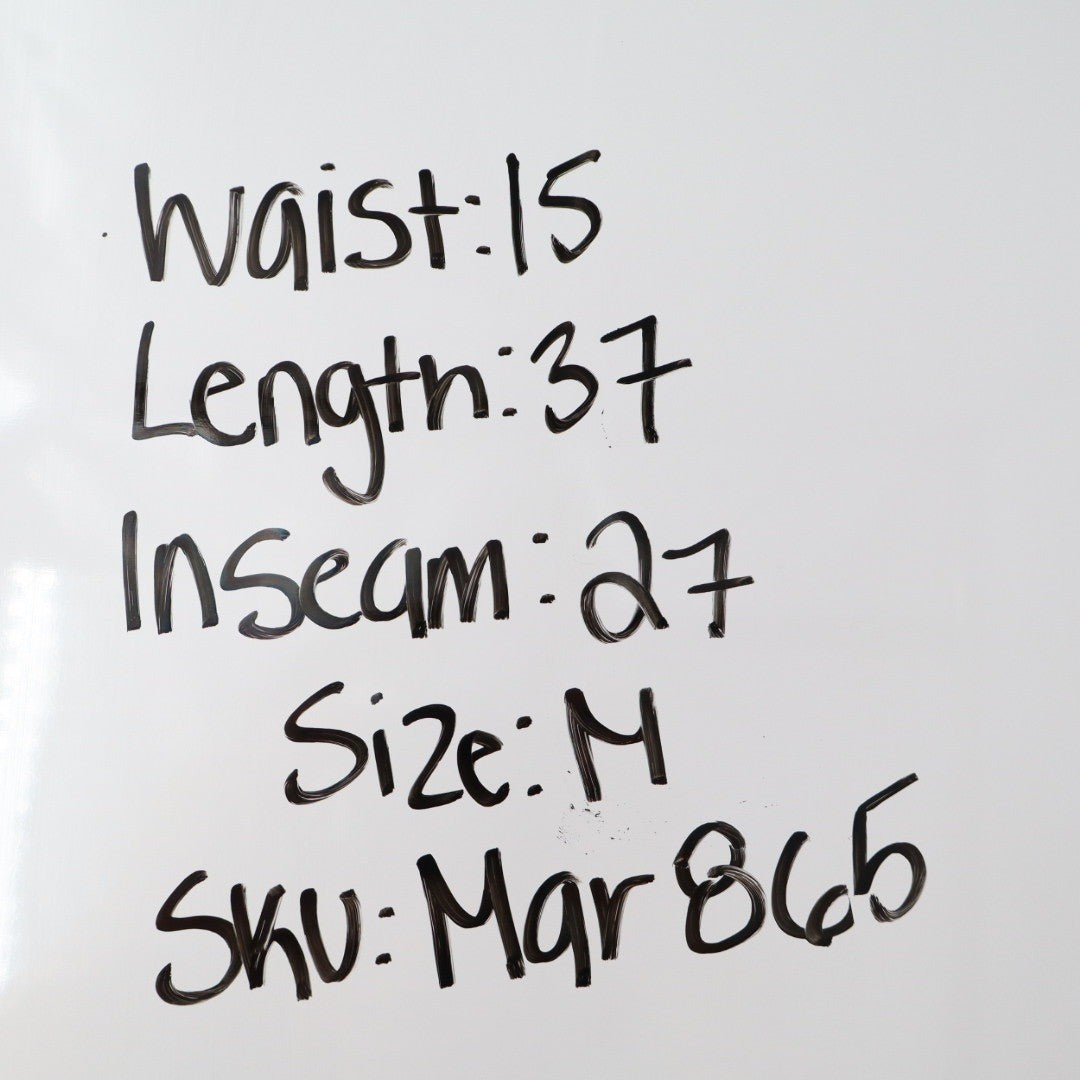 Waist: 15
Length: 37
Inseam: 27
Size: M
Sku: Mar 865